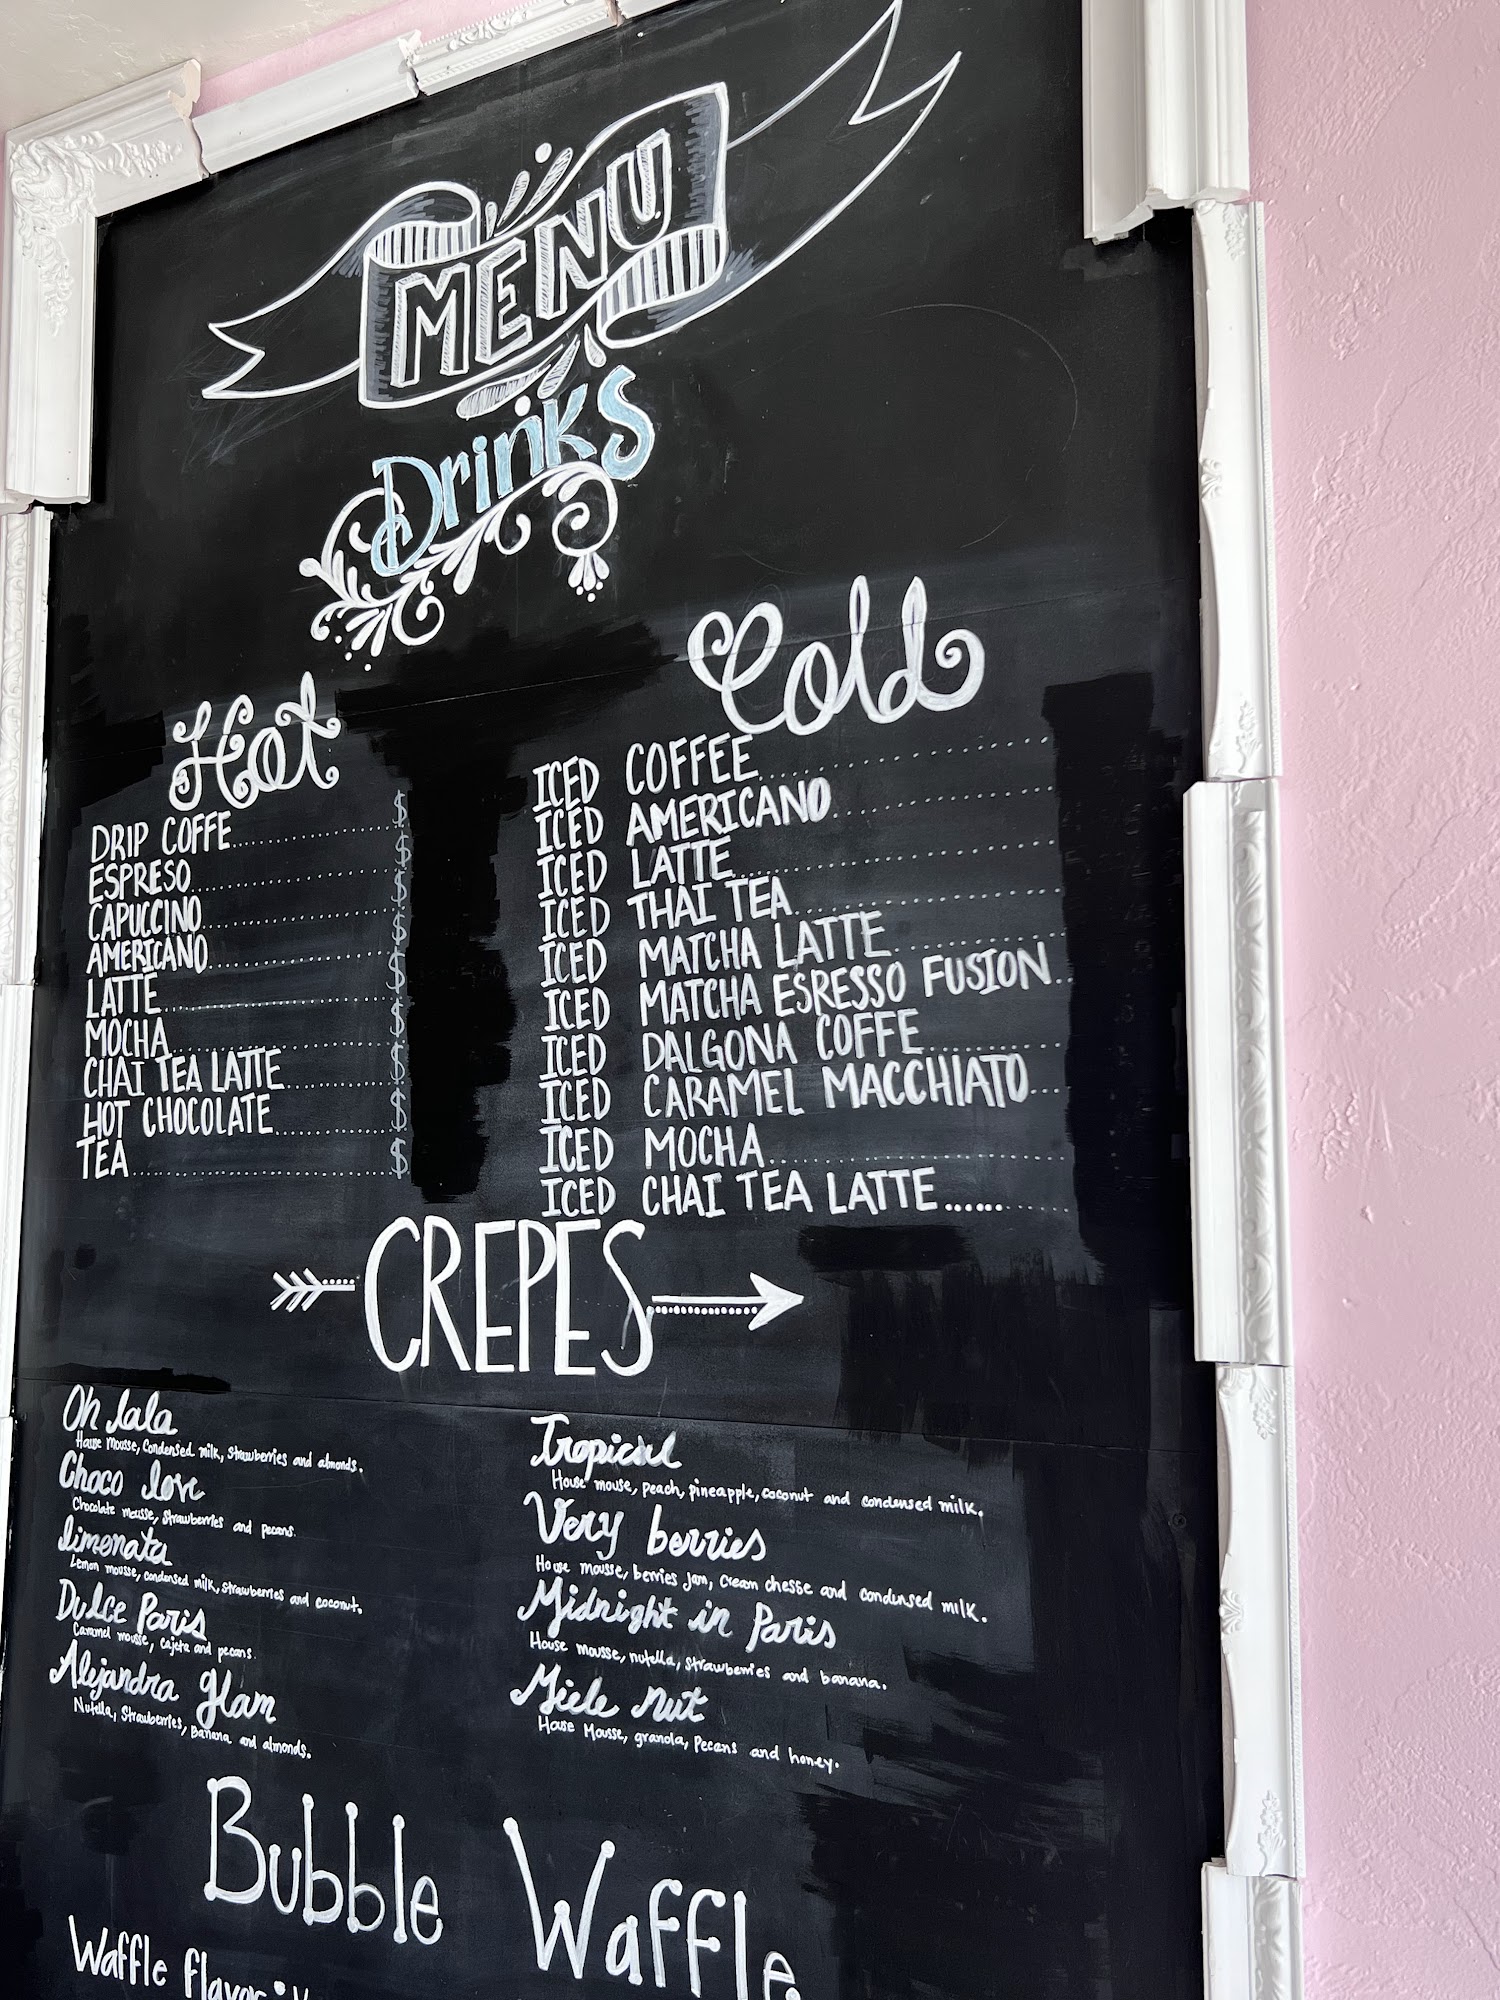 MENU
Drinks
Hot
DRIP COFFE.......................$
ESPRESO.......................$
CAPUCCINO.......................$
AMERICANO.......................$
LATTE.......................$
MOCHA.......................$
CHAI TEA LATTE.......................$
HOT CHOCOLATE.......................$
TEA.......................$
Cold
ICED COFFEE.......................
ICED AMERICANO.......................
ICED LATTE.......................
ICED THAI TEA.......................
ICED MATCHA LATTE.......................
ICED MATCHA ESRESSO FUSION...
ICED DALGONA COFFE.............
ICED CARAMEL MACCHIATO....
ICED MOCHA.......................
ICED CHAI TEA LATTE............
CREPES
Oh lala
House mousse, condensed milk, strawberries and almonds.
Choco love
Chocolate mousse, strawberries and pecans.
limonata
Lemon mousse, condensed milk, strawberries and coconut.
Dulce Paris
Caramel mousse, cajeta and pecans.
Alejandra glam
Nutella, strawberries, Banana and almonds.
Tropical
House mouse, peach, pineapple, coconut and condensed milk.
Very berries
House mousse, berries jam, cream chesse and condensed milk.
Midnight in Paris
House mousse, nutella, strawberries and banana.
Miele nut
House Mousse, granola, Pecans and honey.
Bubble Waffle
Waffle flavor: